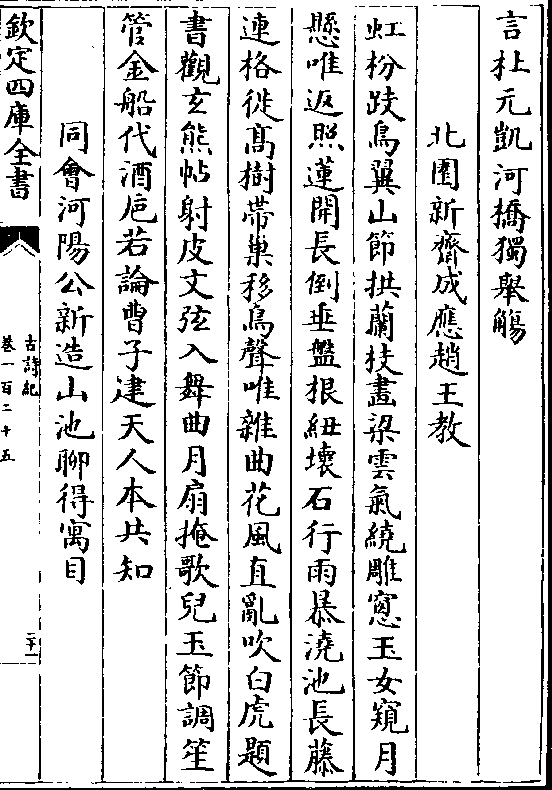 言杜元凱河橋獨舉觴
北園新齋成應趙王教
虹枌跂鳥翼山節拱蘭枝畫梁雲氣繞雕窻玉女窺月
懸唯返照蓮開長倒垂盤根紐壞石行雨暴澆池長藤
連格徙髙樹帶巢移鳥聲唯雜曲花風直亂吹白虎題
書觀玄熊帖射皮文弦入舞曲月扇掩歌兒玉節調笙
管金船代酒巵若論曹子建天人本共知
同會河陽公新造山池聊得寓目
欽定四庫全書
古詩紀
卷一百二十五
二十一